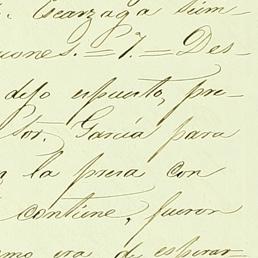 Escarzaga sim-
ciones. = 7. = Des-
dejo espuesto, pre-
Stor. García para
la presa con
contiene, fueron
era de esperar-